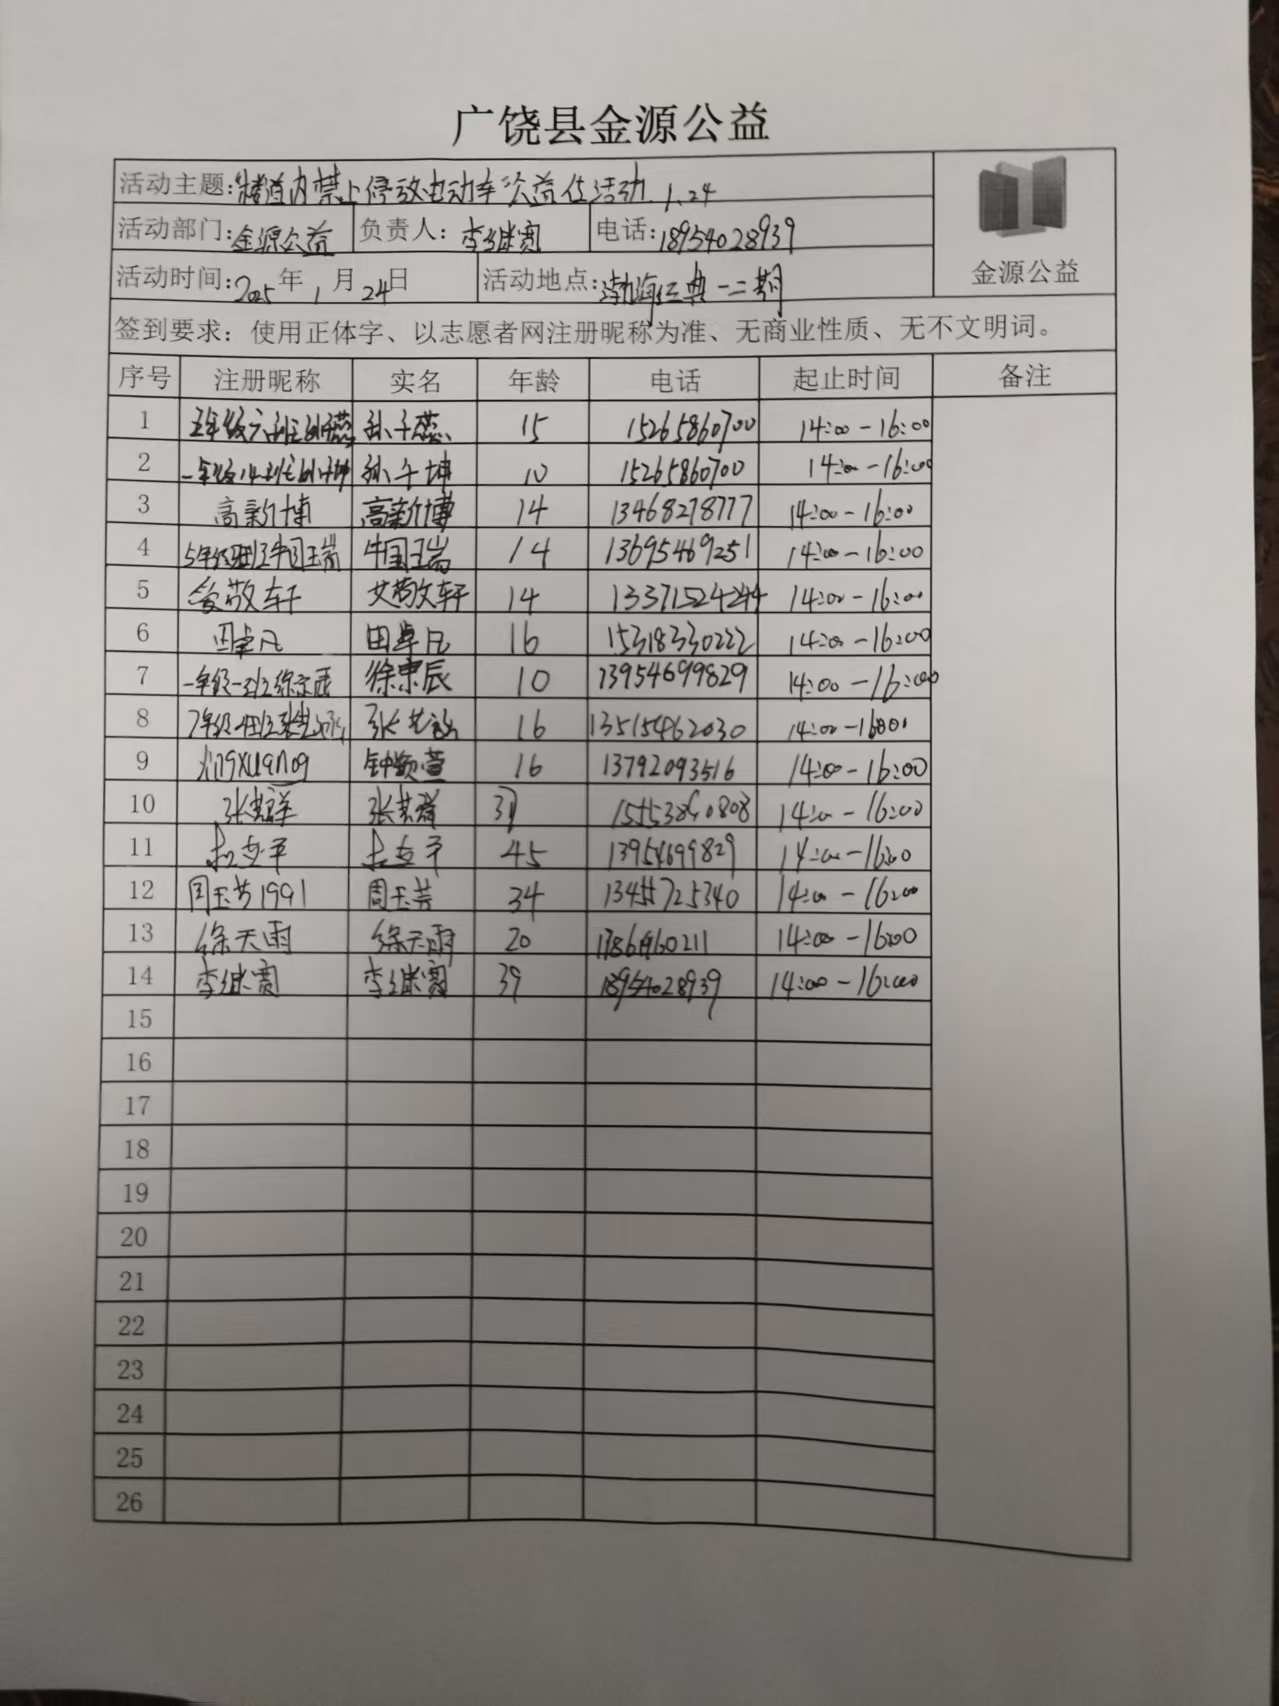 广饶县金源公益
活动主题:楼道内禁止停放电动车公益活动 1.24
活动部门:金源公益 负责人:李继宽 电话:18954028939
金源公益
活动时间:2025年1月24日 活动地点:渤海经典一二期
签到要求:使用正体字、以志愿者网注册昵称为准、无商业性质、无不文明词。
序号 注册昵称 实名 年龄 电话 起止时间 备注
1 五年级六班孙子蕊 孙子蕊 15 15265860700 14:00-16:00
2 一年级14班孙子坤 孙子坤 10 15265860700 14:00-16:00
3 高新博 高新博 14 13468278777 14:00-16:00
4 牛国瑞 14 13695469251 14:00-16:00
5 敬轩 艾敬轩 14 13371524244 14:00-16:00
6 田卓凡 田卓凡 16 15318330222 14:00-16:00
7 一年级一班徐东辰 徐東辰 10 13954699829 14:00-16:00
8 16 13515462030 14:00-16:00
9 钟颖萱 16 13792093516 14:00-16:00
10 张其群 张其群 14:00-16:00
11 45 13954699829 14:00-16:00
12 周玉芳1991 周玉芳 34 14:00-16:00
13 徐天雨 徐天雨 20 14:00-16:00
14 李继宽 李继宽 39 18954028939 14:00-16:00
15
16
17
18
19
20
21
22
23
24
25
26